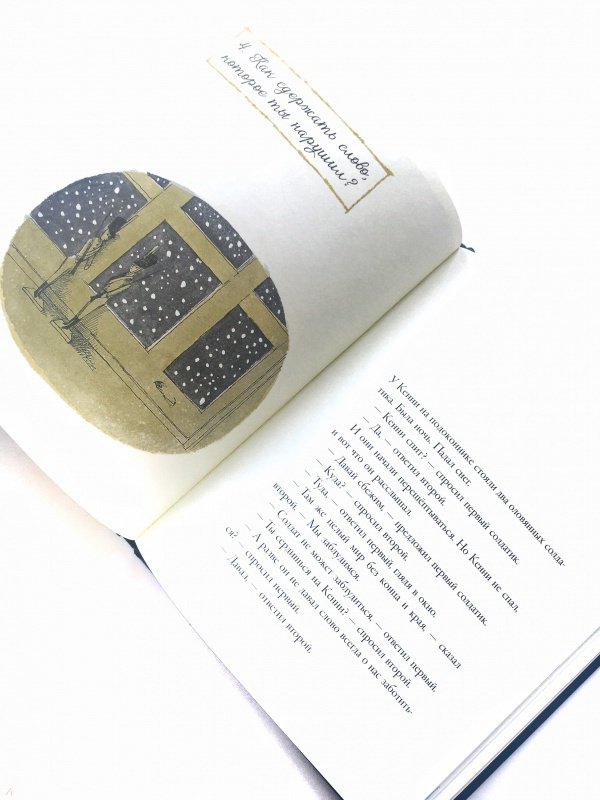 4. Как сдержать слово,
которое ты нарушил?
У Ксюни на подоконнике стояли два оловянных солда-
тика. Была ночь. Падал снег.
– Ксюни спит? – спросил первый солдатик.
– Да, – ответил второй.
И они начали перешёптываться. Но Ксюни не спал,
и вот что он расслышал.
– Давай сбежим, – предложил первый солдатик.
– Куда? – спросил второй.
– Туда, – ответил первый, глядя в окно.
– Там же целый мир без конца и края, – сказал
второй. – Мы заблудимся.
– Солдат не может заблудиться, – ответил первый.
– Ты сердишься на Ксюни? – спросил второй.
– А разве он не давал слово всегда о нас заботить-
ся? – спросил первый.
– Давал, – ответил второй.